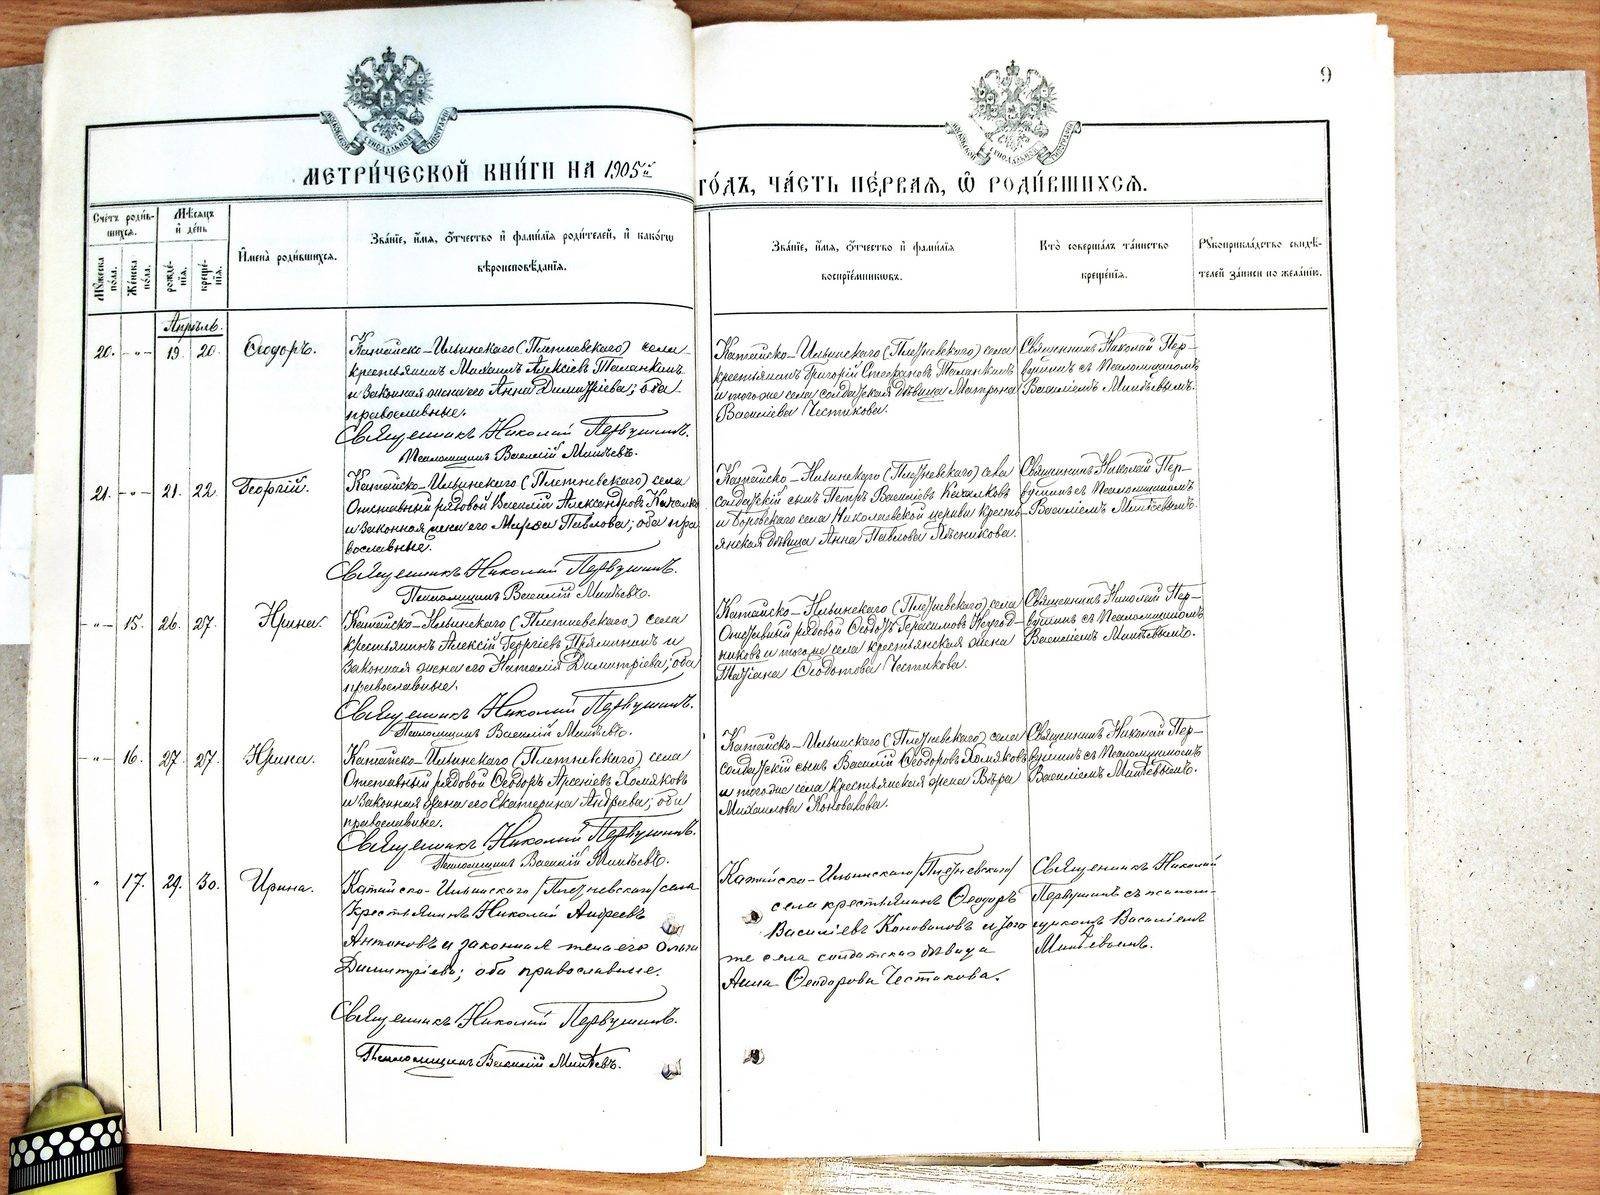 МЕТРИ́ЧЕСКОЙ КНИ́ГИ НА 1905й
ГО́ДЪ, ЧА́СТЬ ПЕ́РВАЯ, Ѡ РОДИ́ВШИХСЯ.
9
Сче́тъ роди́в-
шихся.
Мужеска по́ла.
Же́нска по́ла.
Мѣ́сяцъ
и де́нь
рожде́-
нія.
креще́-
нія.
И҆мена̀ роди́вшихся.
Зва́ніе, и҆́мя, ѻ҆́тчество и҆ фами́лія роди́телей, и҆ како́гѡ
вѣроисповѣ́данія.
Зва́ніе, и҆́мя, ѻ҆́тчество и҆ фами́лія
воспріе́мниковъ.
Кто̀ соверша́лъ та́инство
креще́нія.
Рукоприкла́дство свидѣ́-
телей за́писи по жела́нію.
Апрѣль.
20. -„- 19. 20. Ѳеодоръ.
Катайско-Ильинскаго (Плетневскаго) села
крестьянинъ Михаилъ Алексіевъ Таланкинъ
и законная жена его Анна Димитріева; оба
православные.
Священникъ Николай Первушинъ.
Псаломщикъ Василій Митѣевъ.
Катайско-Ильинскаго (Плетневскаго) села
крестьянинъ Григорій Стефановъ Таланкинъ
и того же села солдатская дѣвица Матрона
Василіева Чистикова.
Священникъ Николай Пер-
вушинъ съ Псаломщикомъ
Василіемъ Митѣевымъ.
21. -„- 21. 22. Георгій.
Катайско-Ильинскаго (Плетневскаго) села
Отставный рядовой Василій Александровъ
и законная жена его Марѳа Павлова; оба пра
вославные.
Священникъ Николай Первушинъ.
Псаломщикъ Василій Митѣевъ.
Катайско-Ильинскаго (Плетневскаго) села
солдатскій сынъ Петръ Василіевъ
и Боровскаго села Николаевской церкви кресть-
янская дѣвица Анна Павлова Лѣсникова.
Священникъ Николай Пер-
вушинъ съ Псаломщикомъ
Василіемъ Митѣевымъ.
-„- 15. 26. 27. Ирина.
Катайско-Ильинскаго (Плетневскаго) села
крестьянинъ Алексій Георгіевъ Пряминъ и
законная жена его Наталія Димитріева; оба
православные.
Священникъ Николай Первушинъ.
Псаломщикъ Василій Митѣевъ.
Катайско-Ильинскаго (Плетневскаго) села
Отставный рядовой Ѳеодотъ Герасимовъ Неугод-
никовъ и того же села крестьянская жена
Татіана Ѳеодотова Чистикова.
Священникъ Николай Пер-
вушинъ съ Псаломщикомъ
Василіемъ Митѣевымъ.
-„- 16. 27. 27. Ирина.
Катайско-Ильинскаго (Плетневскаго) села
Отставный рядовой Ѳеодоръ Арсеніевъ Хомяковъ
и законная жена его Екатерина Андреева; оба
православные.
Священникъ Николай Первушинъ.
Псаломщикъ Василій Митѣевъ.
Катайско-Ильинскаго (Плетневскаго) села
солдатскій сынъ Василій Ѳеодоровъ Хомяковъ
и того же села крестьянская жена Вѣра
Михаилова Коновалова.
Священникъ Николай Пер-
вушинъ съ Псаломщикомъ
Василіемъ Митѣевымъ.
„ 17. 29. 30. Ирина.
Катайско-Ильинскаго /Плетневскаго/ села
крестьянинъ Николай Андреевъ
Антоновъ и законная жена его Ольга
Димитріева; оба православные.
Священникъ Николай Первушинъ.
Псаломщикъ Василій Митѣевъ.
Катайско-Ильинскаго /Плетневскаго/
села крестьянинъ Ѳеодоръ
Василіевъ Коноваловъ и того
же села солдатская дѣвица
Анна Ѳеодорова Чистякова.
Священникъ Николай
Первушинъ съ псалом-
щикомъ Василіемъ
Митѣевымъ.